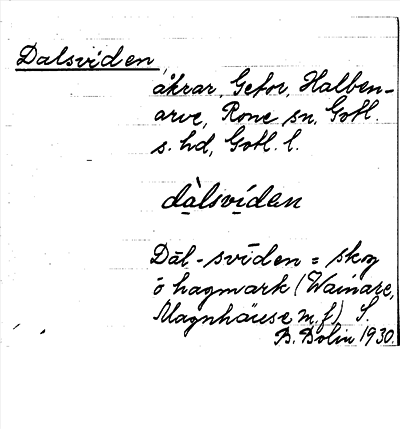 Dalsviden,
åkrar, Gefor, Halben-
arve, Rone sn, Gotl.
s. hd, Gotl. l.
dàlsvíden
Dāl-svīden = skog
ö hagmark (Wainare,
Magnhäuse m.f.) S.
B. Bolin 1930.